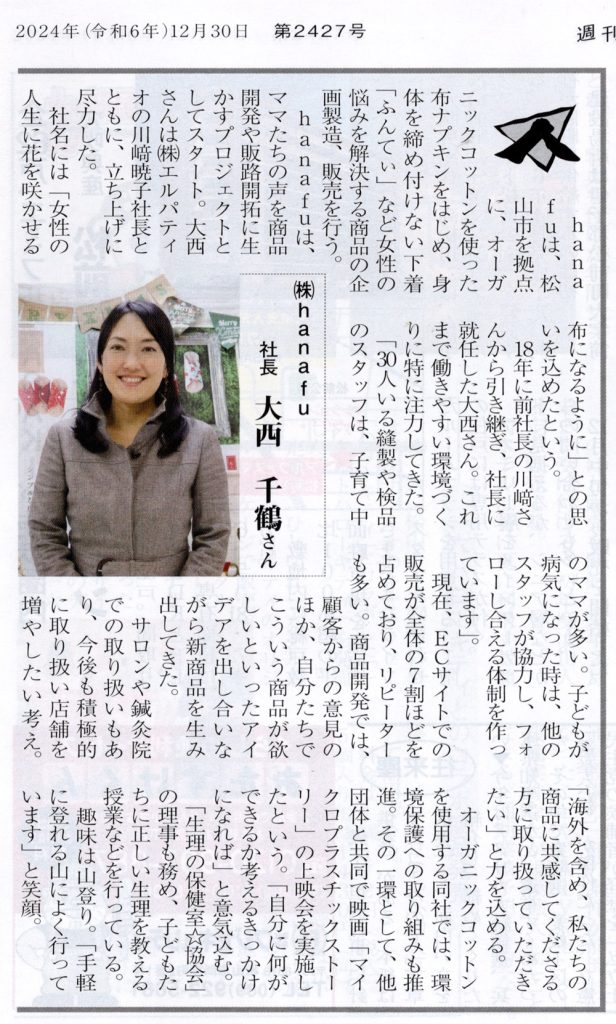 2024年(令和6年)12月30日 第2427号 週刊
hana
fuは、松
山市を拠点
に、オーガ
ニックコットンを使った
布ナプキンをはじめ、身
体を締め付けない下着
「ふんてぃ」など女性の
悩みを解決する商品の企
画製造、販売を行う。
hanafuは、
ママたちの声を商品
開発や販路開拓に生
かすプロジェクトと
してスタート。大西
さんは㈱エルパティ
オの川﨑暁子社長と
ともに、立ち上げに
尽力した。
社名には「女性の
人生に花を咲かせる
㈱hanafu
社長 大西 千鶴さん
布になるように」との思
いを込めたという。
18年に前社長の川﨑さ
んから引き継ぎ、社長に
就任した大西さん。これ
まで働きやすい環境づく
りに特に注力してきた。
「30人いる縫製や検品
のスタッフは、子育て中
のママが多い。子どもが
病気になった時は、他の
スタッフが協力し、フォ
ローし合える体制を作っ
ています」。
現在、ECサイトでの
販売が全体の7割ほどを
占めており、リピーター
も多い。商品開発では、
顧客からの意見の
ほか、自分たちで
こういう商品が欲
しいといったアイ
デアを出し合いな
がら新商品を生み
出してきた。
サロンや鍼灸院
での取り扱いもあ
り、今後も積極的
に取り扱い店舗を
増やしたい考え。
「海外を含め、私たちの
商品に共感してくださる
方に取り扱っていただき
たい」と力を込める。
オーガニックコットン
を使用する同社では、環
境保護への取り組みも推
進。その一環として、他
団体と共同で映画「マイ
クロプラスチックストー
リー」の上映会を実施し
たという。「自分に何が
できるか考えるきっかけ
になれば」と意気込む。
「生理の保健室☆協会」
の理事も務め、子どもた
ちに正しい生理を教える
授業などを行っている。
趣味は山登り。「手軽
に登れる山によく行って
います」と笑顔。